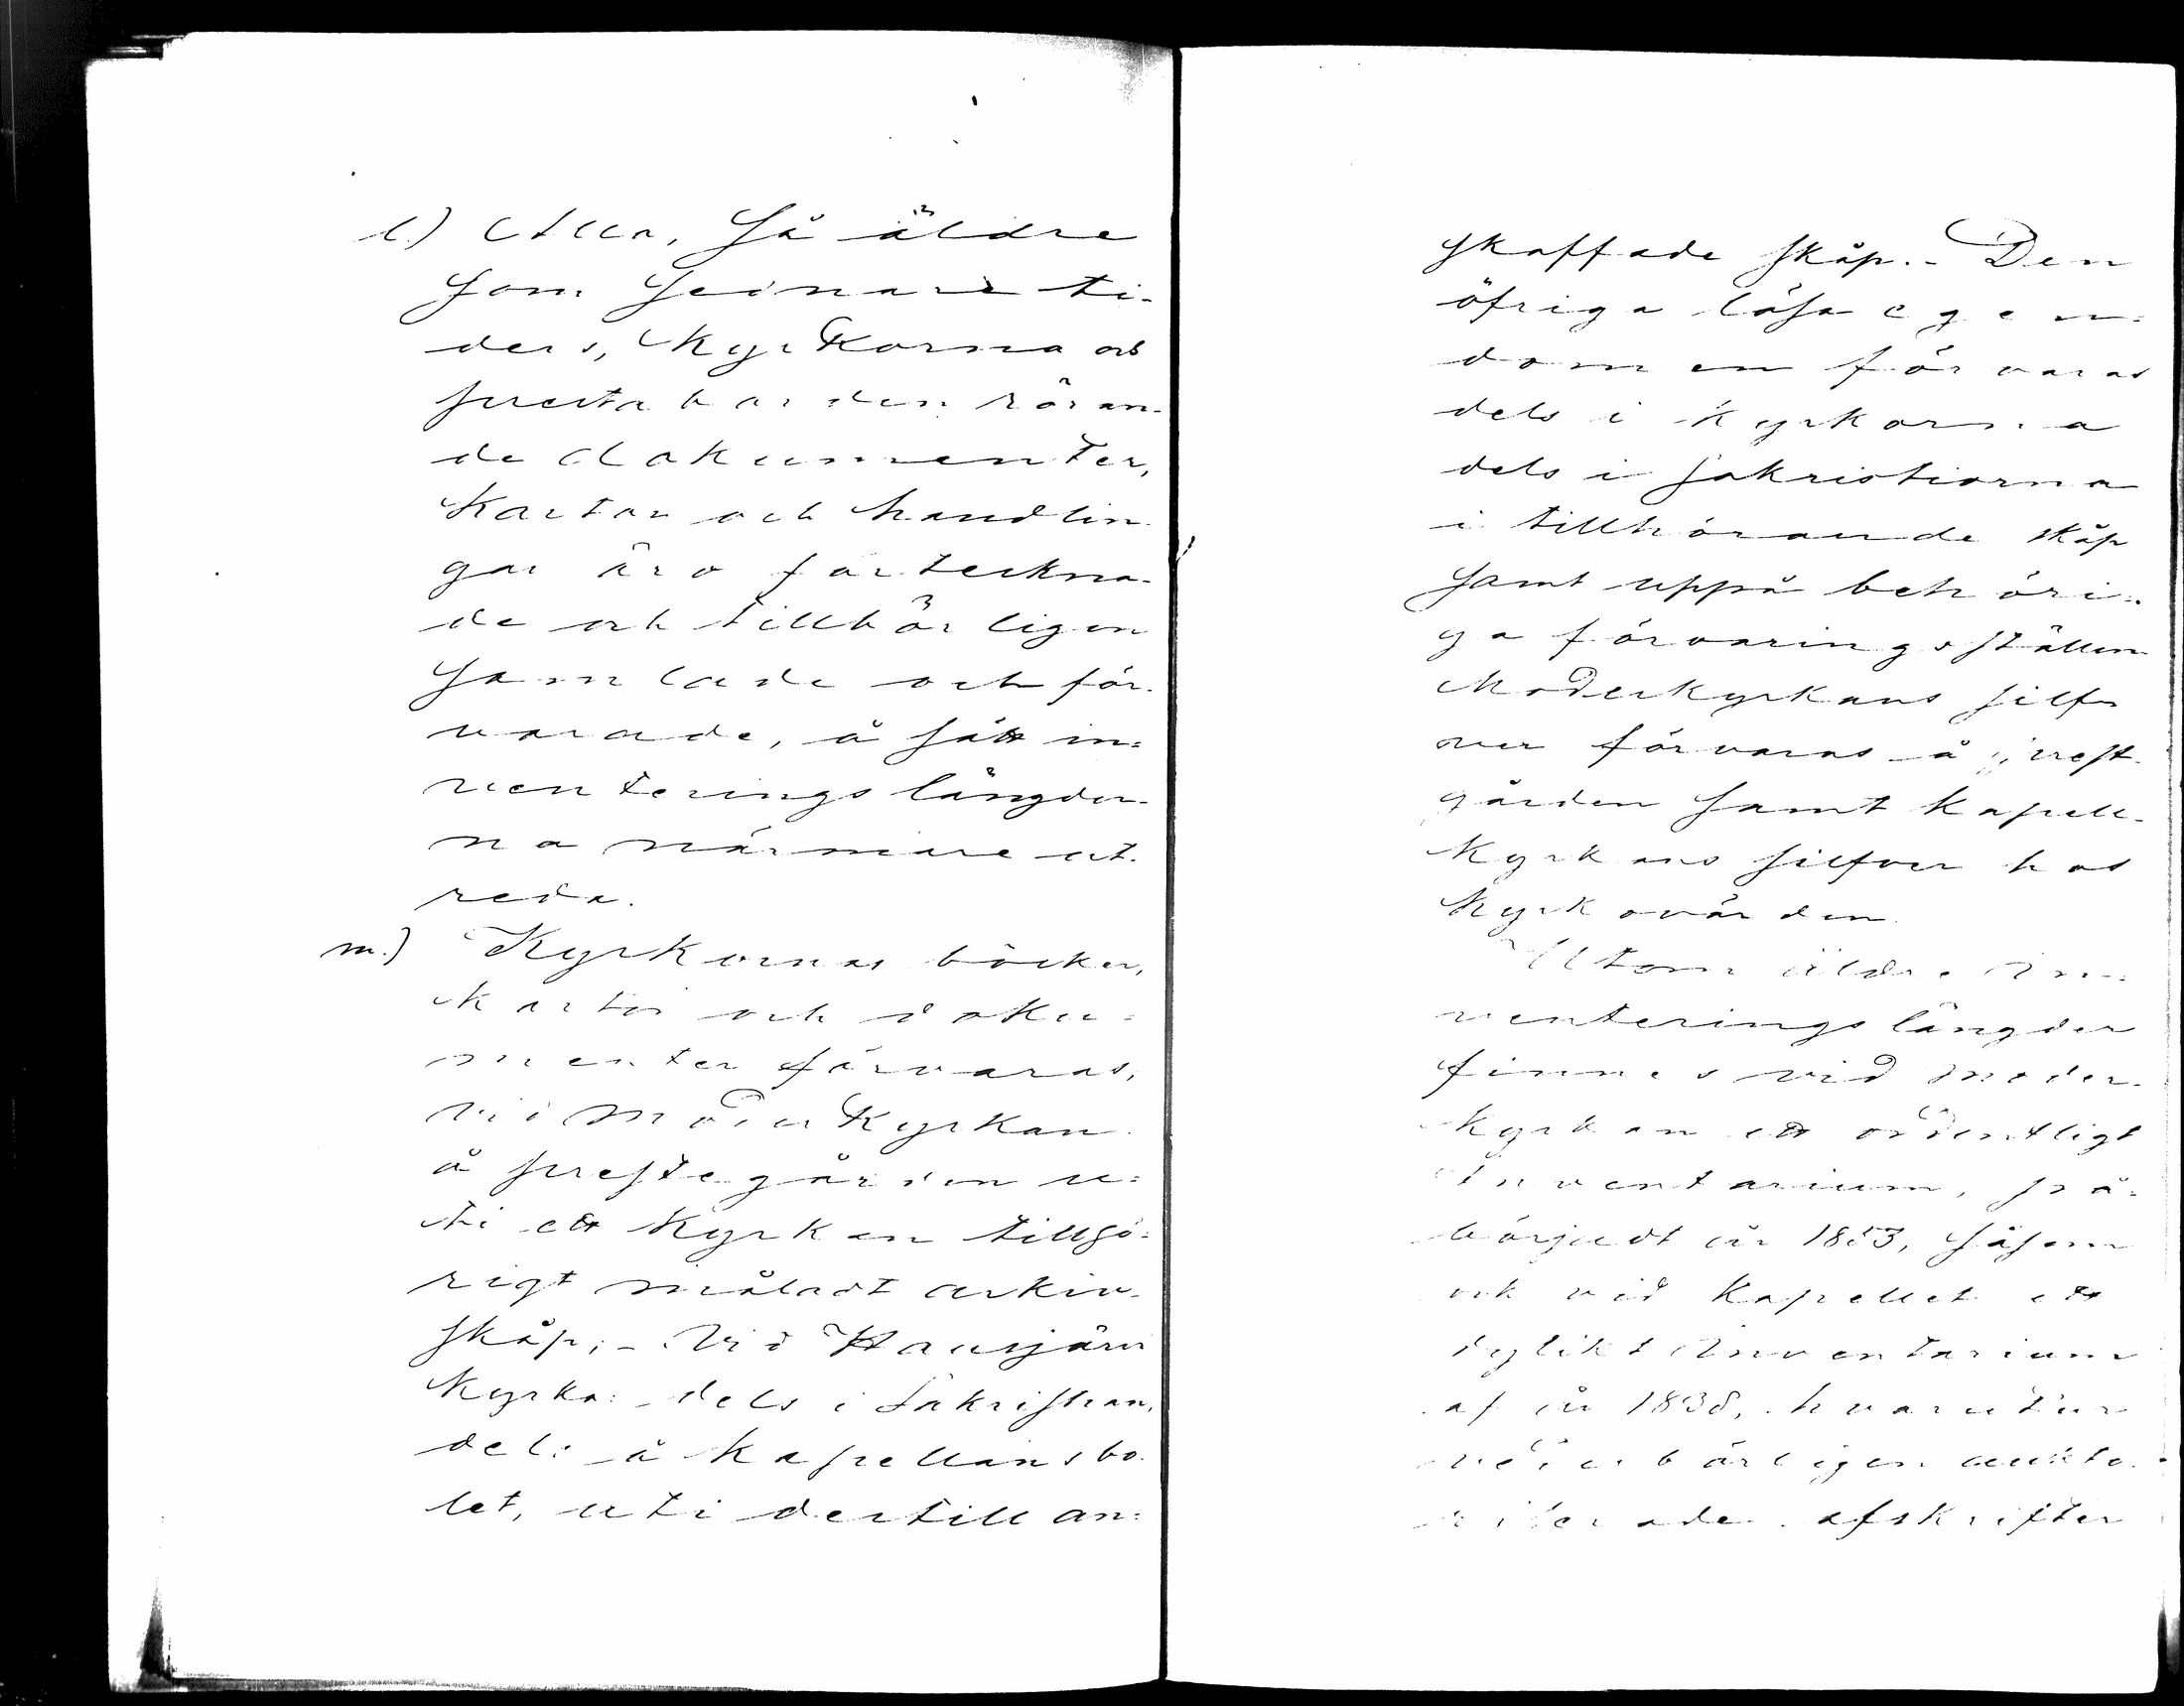 l.) Alla, så äldre
som sednare ti-
ders, Kyrkorna och
prestaborden röran-
de dokumenter,
Kartor och handlin-
gar äro förteckna-
de och tillbörligen
samlade och för-
varade, å sätt in=
venterings längder-
na närmare ut-
reda.
m.) Kyrkornas böcker,
Kartor och doku=
menter förvaras,
vid Moderkyrkan
å prestegården u=
ti ett Kyrkan tillhö=
rigt måladt arkiv-
skåp; - Vid Hausjärvi
Kyrka: dels i Sakristian,
dels å Kapellansbo-
let, uti dertill an=
skaffade skåp. - Den
öfriga lösa egen=
domen förvaras
dels i Kyrkorna
dels i sakristiorna
i tillhörande skåp
samt uppå behöri=
ga förvaringsställen
Moderkyrkans silf-
ver förvaras å prest-
gården samt Kapell-
Kyrkans silfver hos
Kyrkovärden.
Utom äldre In=
venterings längder
finnes vid Moder-
Kyrkan ett ordentligt
Inventarium, på=
börjadt år 1853, såsom
ock vid Kapellet ett
dylikt Inventarium
af år 1838, hvarutur
vederbörligen aukto-
riserade afskrifter